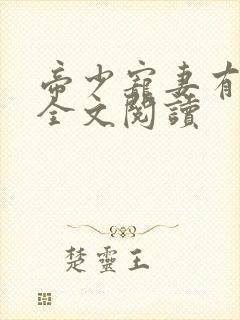 帝少寵妻有
全文閱讀
楚靈王